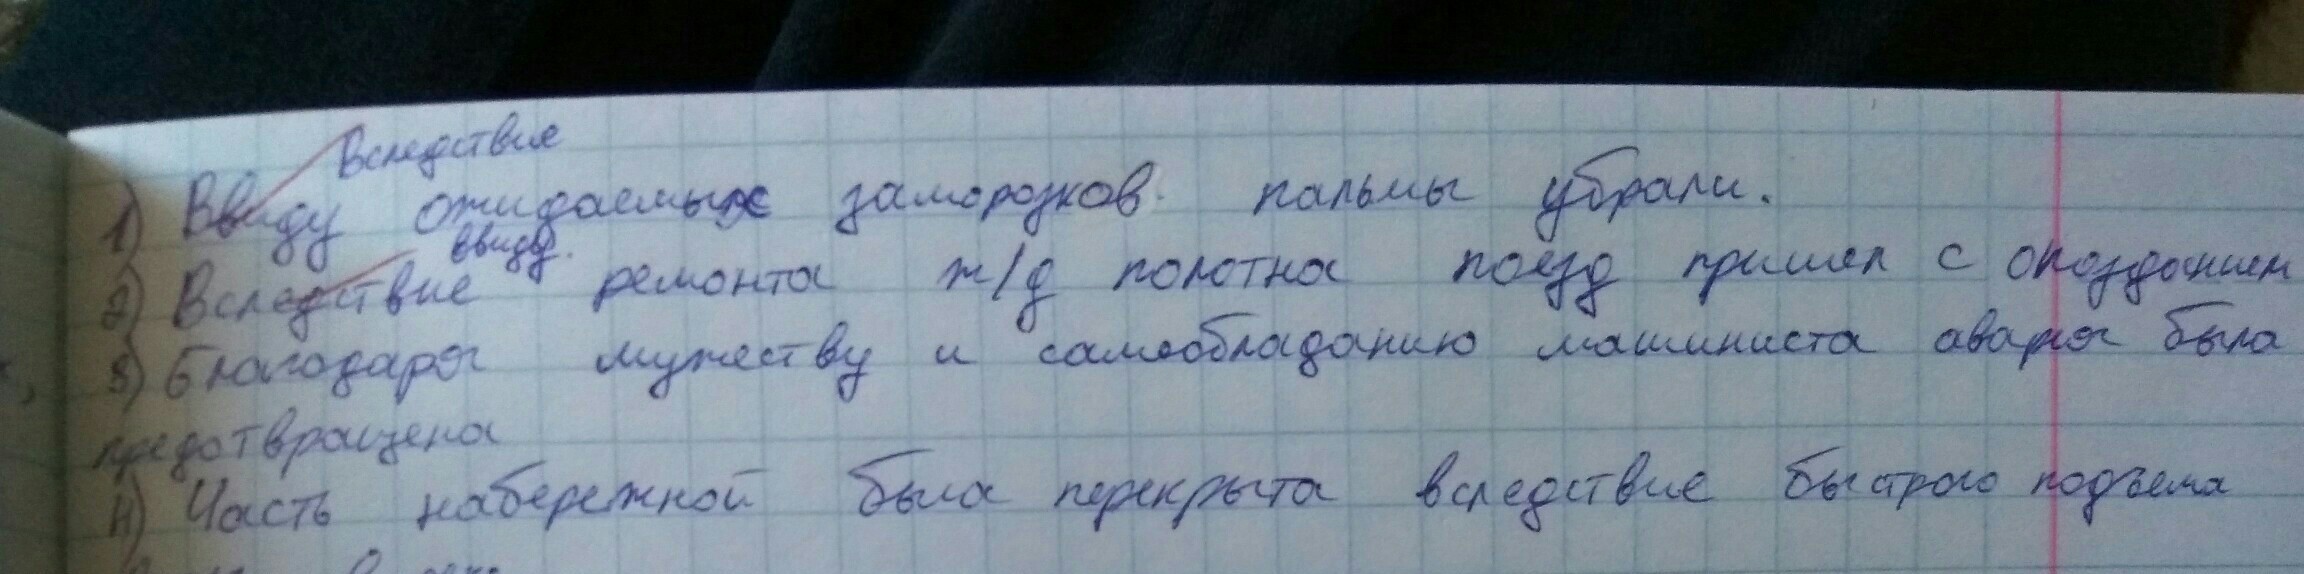 Вследствие
1) Ввиду ожидаемых заморозков пальмы убрали.
ввиду.
2) Вследствие ремонта ж/д полотна поезд пришел с опозданием
3) Благодаря мужеству и самообладанию машиниста авария была
предотвращена
4) Часть набережной была перекрыта вследствие быстрого подъема